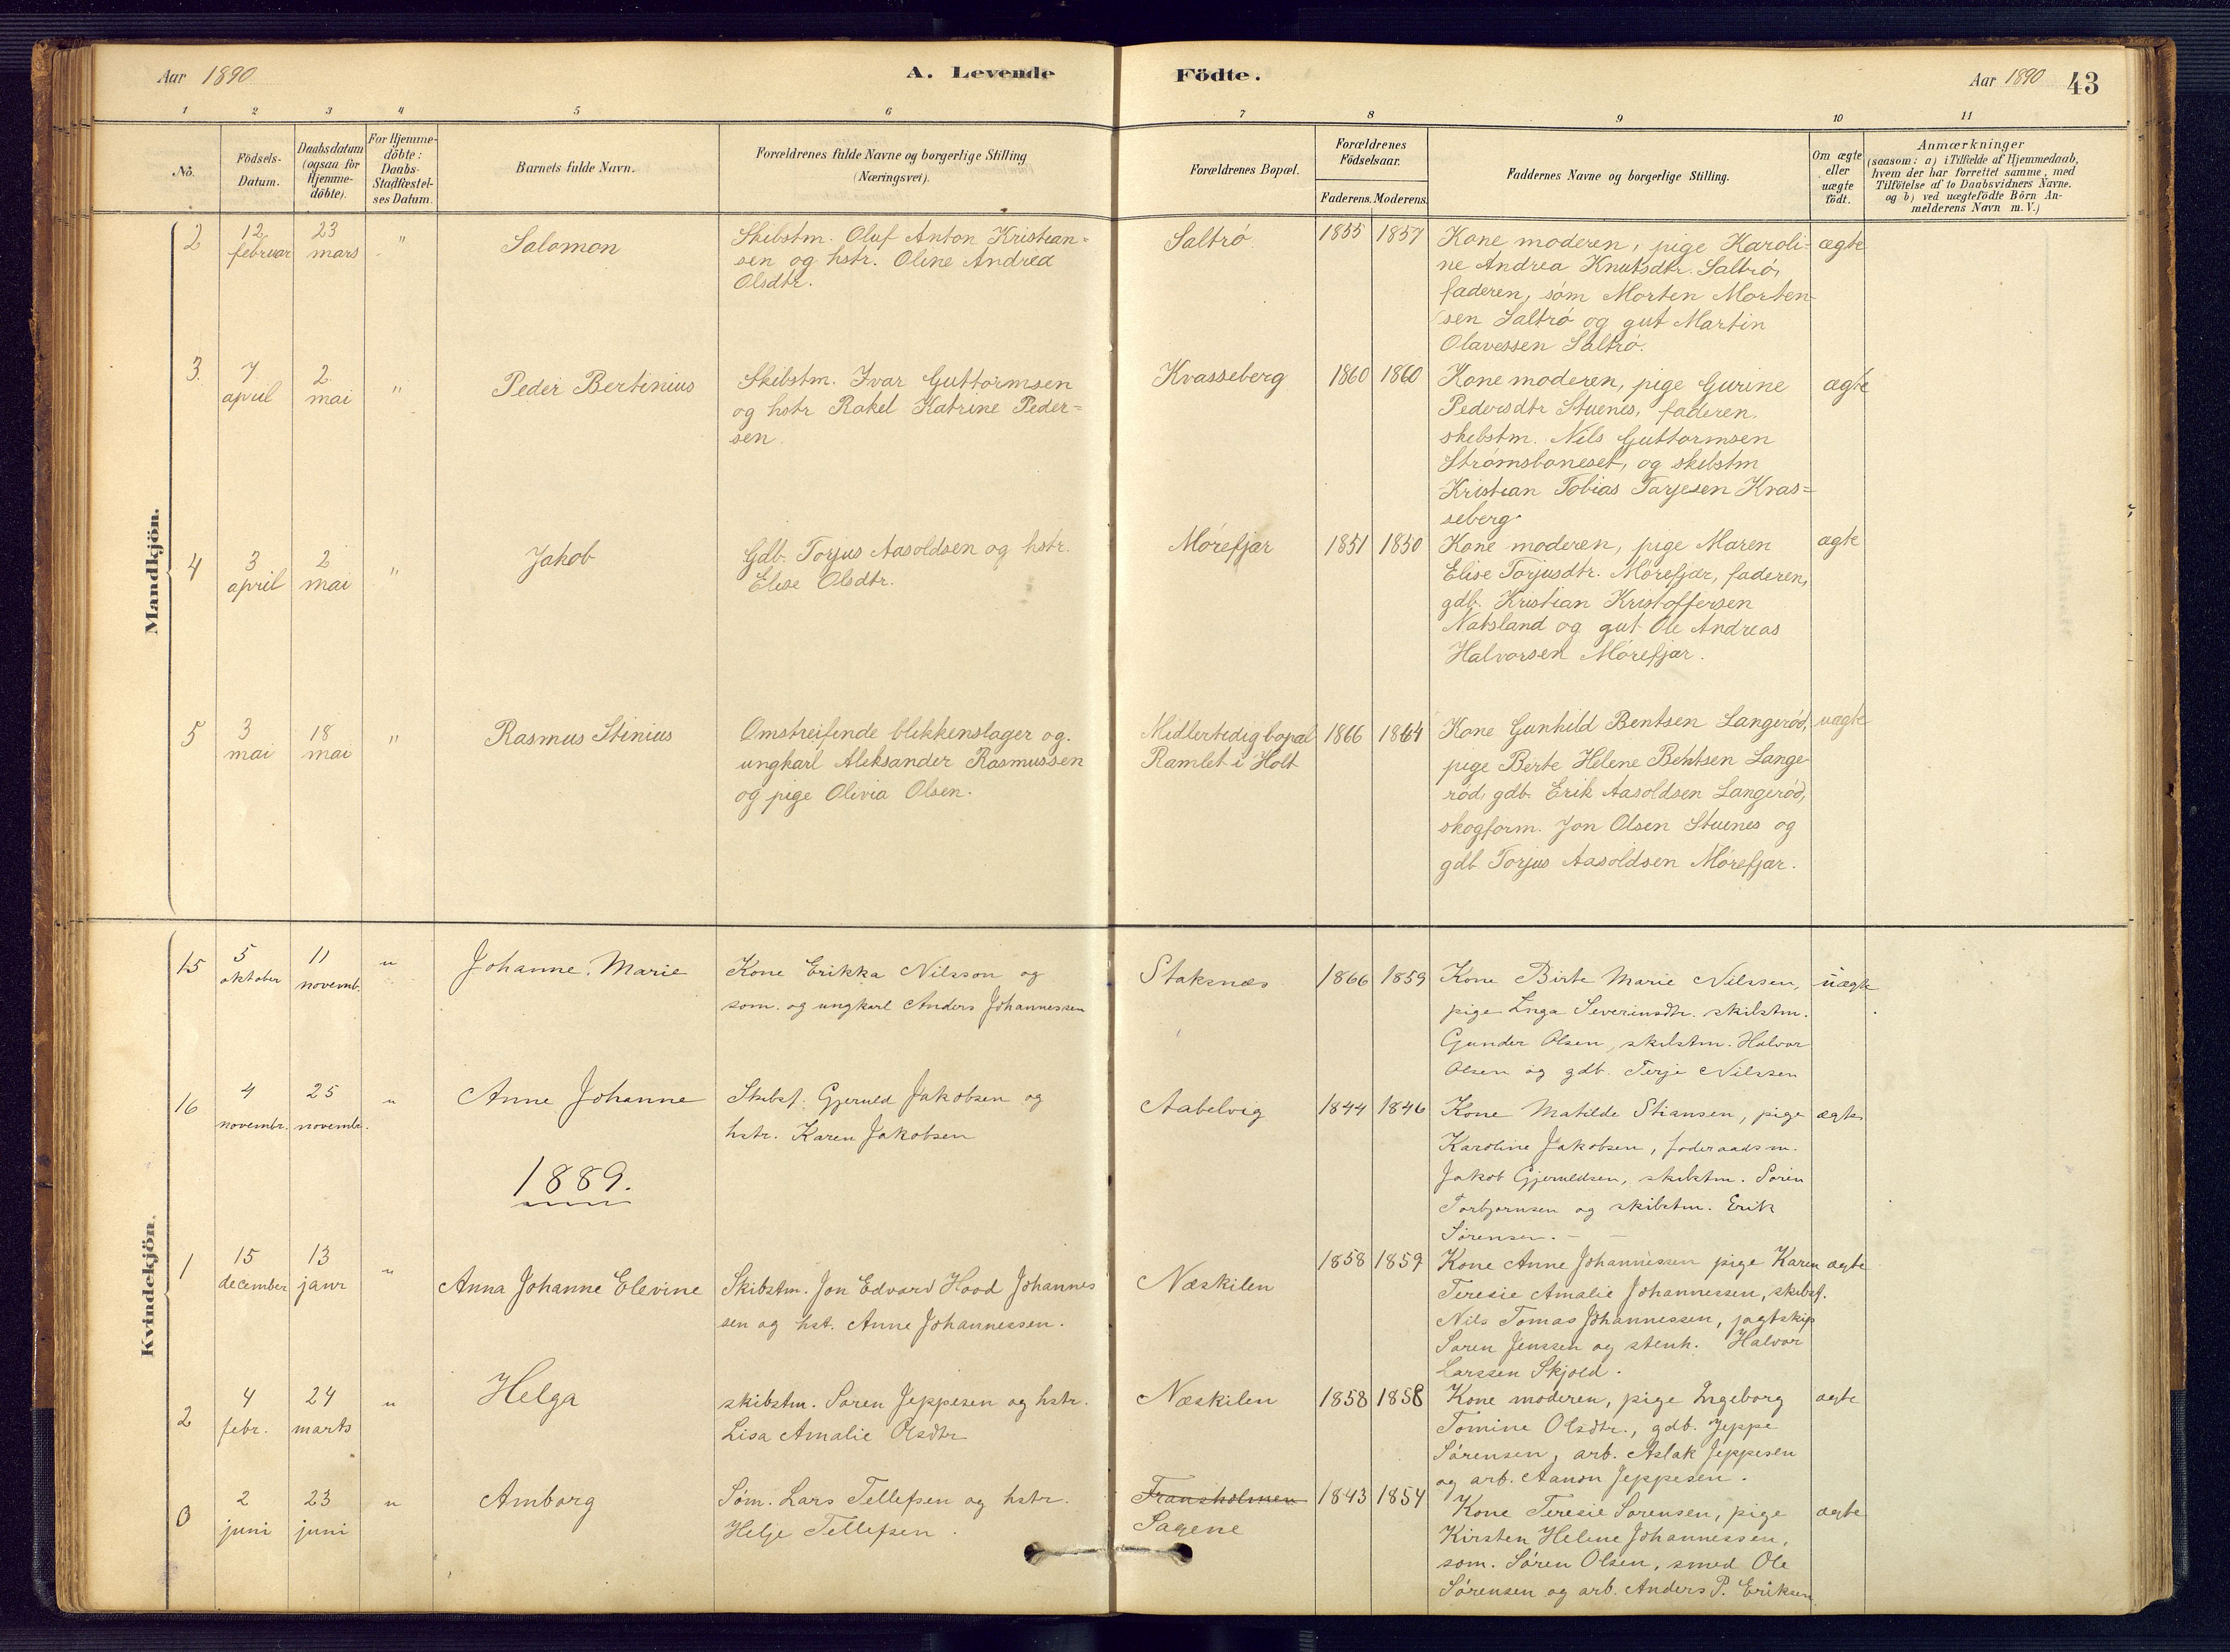 Aar 1890
A. Levende
Födte.
Aar 1890
43
1
2
3
4
5
6
7
8
9
10
11
No.
Födsels-
Datum.
Daabsdatum
(ogsaa for
Hjemme-
döbte).
For Hjemme-
döbte:
Daabs-
Stadfæstel-
ses Datum.
Barnets fulde Navn.
Forældrenes fulde Navne og borgerlige Stilling
(Næringsvei).
Forældrenes Bopæl.
Forældrenes
Födselsaar.
Faderens.
Moderens.
Faddernes Navne og borgerlige Stilling.
Om ægte
eller
uægte
födt.
Anmærkninger
(saasom: a) i Tilfælde af Hjemmedaab,
hvem der har forrettet samme, med
Tilföielse af to Daabsvidners Navne.
og b) ved uægtefödte Börn An-
melderens Navn m. V.)
Mandkjön.
2
12
februar
23
mars
"
Salomon
Skibstm. Oluf Anton Kristian=
sen og hstr. Oline Andrea
Olsdtr.
Saltrø
1855
1857
Kone moderen, pige Karoli-
ne Andrea Knutsdtr. Saltrø,
faderen, søm Morten Morten-
sen Saltrø og gut Martin
Olavessen Saltrø.
ægte
3.
7
april
2
mai
"
Peder Bertinius
Skibstm. Ivar Guttormsen
og hstr Rakel Katrine Peder=
sen.
Kvasseberg
1860
1860
Kone moderen, pige Gurine
Pedersdtr Stuenes, faderen,
skibstm. Nils Guttormsen
Strømsboneset, og skibstm
Kristian Tobias Tarjesen Kvas=
seberg
ægte
4
3
april
2
mai
"
Jakob
Gdb. Torjus Aasoldsen og hstr.
Elise Olsdtr.
Mørefjær
1851
1850
Kone moderen, pige Maren
Elise Torjusdtr. Mørefjær, faderen,
gdb. Kristian Kristoffersen
Natsland og gut Ole Andreas
Halvorsen Mørefjær.
ægte
5
3
mai
18
mai
"
Rasmus Stinius
Omstreifende blikkenslager og
ungkarl Aleksander Rasmussen
og pige Olivia Olsen.
Midlertidig bopæl
Ramlet i Holt
1866
1864
Kone Gunhild Bentsen Langerød,
pige Berte Helene Bentsen Lange-
rød, gdb. Erik Aasoldsen Langerød,
skogform. Jon Olsen Stuenes og
gdb Torjus Aasoldsen Mørefjær.
uægte
Kvindekjön.
15
5
oktober
11
novemb.
"
Johanne Marie
Kone Erikka Nilsson og
søm. og ungkarl Anders Johannessen
Staksnæs
1866
1859
Kone Birte Marie Nilssen,
pige Inga Severinsdtr. skibstm.
Gunder Olsen, skibstm. Halvor
Olsen og gdb. Terje Nilssen
uægte
16
4
novembr.
25
novembr.
"
Anne Johanne
Skibsf. Gjeruld Jakobsen og
hstr. Karen Jakobsen
Aabelvig
1844
1846
Kone Matilde Stiansen, pige
Karoline Jakobsen, foderaadsm.
Jakob Gjeruldsen, skibstm. Søren
Torbjørnsen og skibstm. Erik
Sørensen.
ægte
1889.
1
15
december
13
janr
"
Anna Johanne Elevine
Skibstm. Jon Edvard Hood Johannes
sen og hst. Anne Johannessen.
Næskilen
1858
1859
Kone Anne Johannessen pige Karen
Teresie Amalie Johannessen, skibsf.
Nils Tomas Johannessen, jagtskip
Søren Jenssen og stenh. Halvor
Larssen Skjold.
ægte
2
4
febr.
24
marts
"
Helga
skibstm. Søren Jeppesen og hstr.
Lisa Amalie Olsdtr
Næskilen
1858
1858
Kone moderen, pige Ingeborg
Tomine Olsdtr., gdb. Jeppe
Sørensen, arb. Aslak Jeppesen
og arb. Aanon Jeppesen.
ægte
3
2
juni
23
juni
"
Amborg
Søm. Lars Tellefsen og hstr.
Helje Tellefsen.
Fransholmen
Sagene
1843
1854
Kone Teresie Sørensen, pige
Kirsten Helene Johannessen,
søm. Søren Olsen, smed Ole
Sørensen og arb. Anders P. Eriksen
ægte